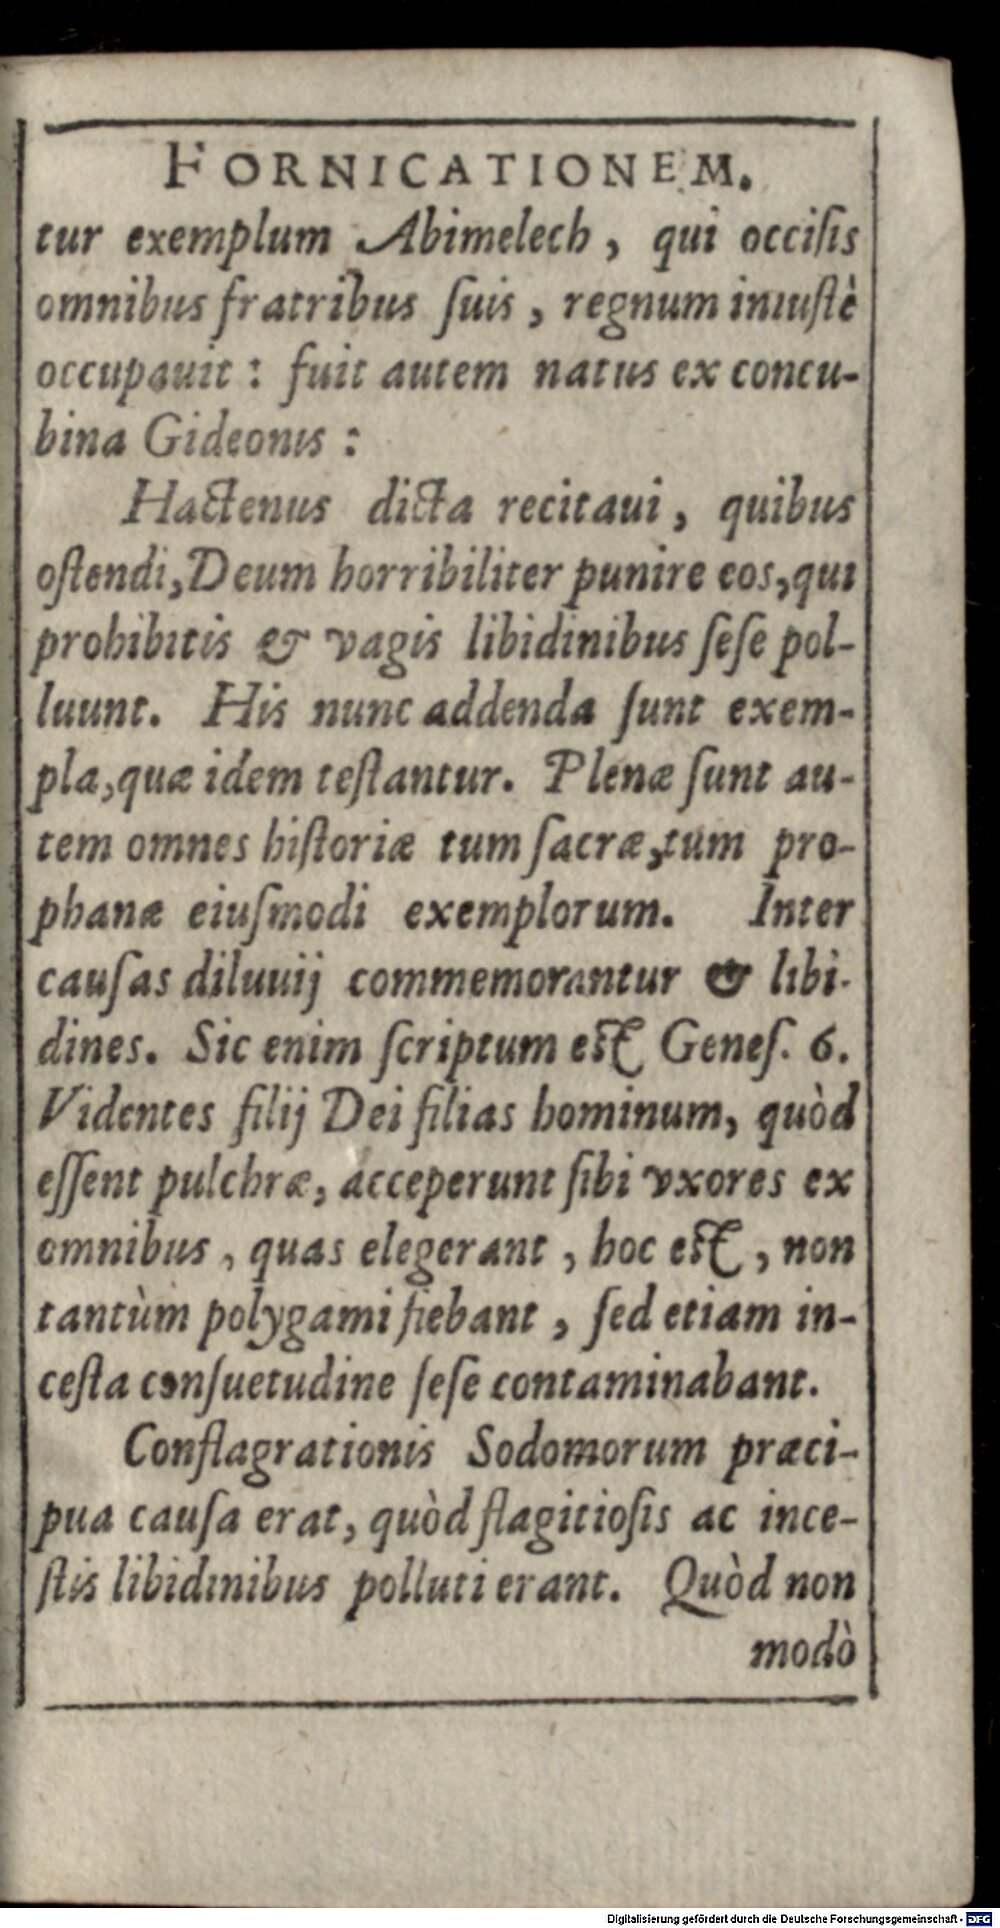 FORNICATIONEM.
tur exemplum Abimelech, qui occiſis
omnibus fratribus ſuis, regnum iniuſtè
occupauit: fuit autem natus ex concu-
bina Gideonis:
Hactenus dicta recitaui, quibus
oſtendi, Deum horribiliter punire eos, qui
prohibitis & vagis libidinibus ſeſe pol-
luunt. His nunc addenda ſunt exem-
pla, quæ idem teſtantur. Plenæ ſunt au-
tem omnes hiſtoriæ tum ſacræ, tum pro-
phanæ eiuſmodi exemplorum. Inter
cauſas diluuij commemorantur & libi-
dines. Sic enim ſcriptum eſt Geneſ. 6.
Videntes filij Dei filias hominum, quòd
eſſent pulchræ, acceperunt ſibi vxores ex
omnibus, quas elegerant, hoc eſt, non
tantùm polygami fiebant, ſed etiam in-
ceſta conſuetudine ſeſe contaminabant.
Conflagrationis Sodomorum præci-
pua cauſa erat, quòd flagitioſis ac ince-
ſtis libidinibus polluti erant. Quòd non
modò
Digitalisierung gefördert durch die Deutsche Forschungsgemeinschaft - DFG